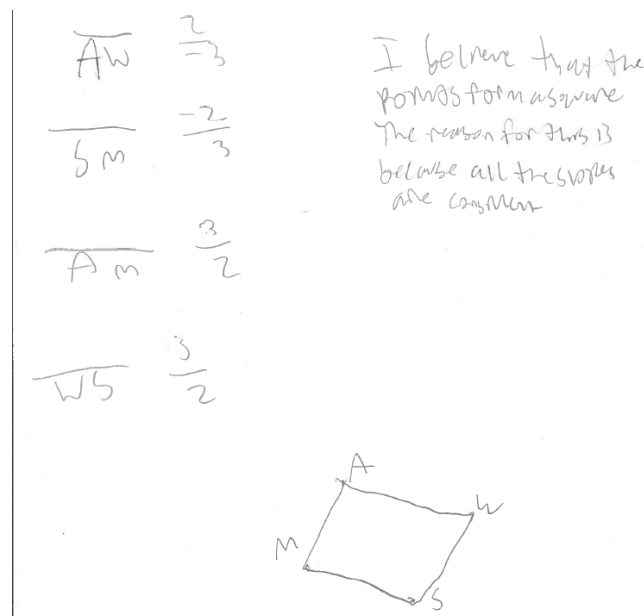 AW 2/-3
SM -2/3
Am 3/2
WS 3/2
I believe that the
points form a square
The reason for this is
because all the slopes
are congruent
A
W
M
S